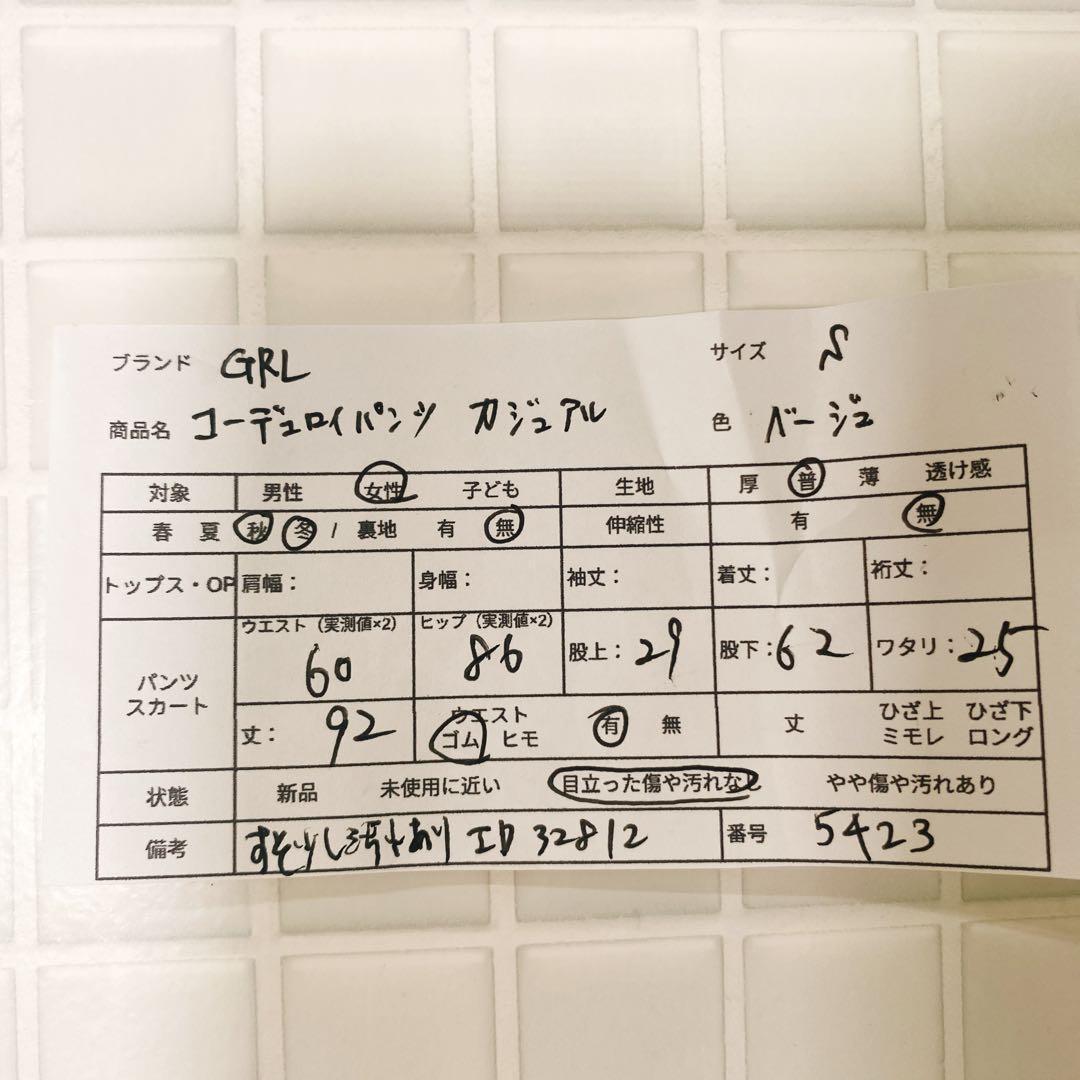 ブランド GRL サイズ S
商品名 コーデュロイパンツ カジュアル 色 ベージュ
対象 男性 女性 子ども 生地 厚 普 薄 透け感
春 夏 秋 冬 / 裏地 有 無 伸縮性 有 無
トップス・OP 肩幅: 身幅: 袖丈: 着丈: 裄丈:
パンツ スカート
ウエスト(実測値×2) 60 ヒップ(実測値×2) 86 股上: 29 股下: 62 ワタリ: 25
丈: 92 ウエスト 有 無 丈 ひざ上 ひざ下
ゴム ヒモ ミモレ ロング
状態 新品 未使用に近い 目立った傷や汚れなし やや傷や汚れあり
備考 すそ少し汚れあり ID 32812 番号 5423